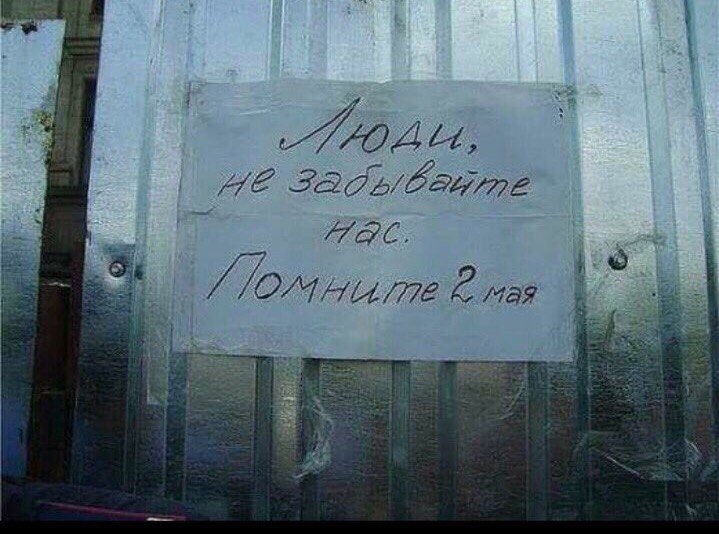 Люди,
не забывайте
нас.
Помните 2 мая